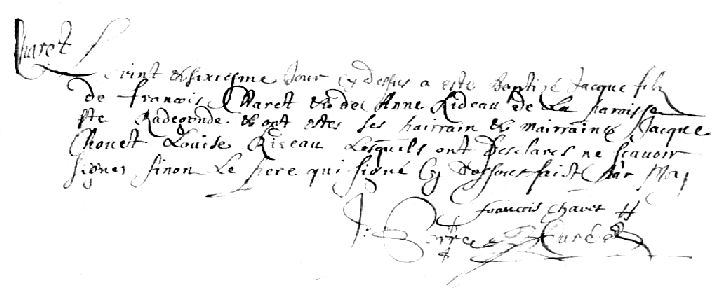 Charet
Le vint & sixiesme Jour Cy dessus a este baptise Jacque fils
de francois Charet et de Anne Rideau de La paroisse
Ste Radegonde et ont estes ses pairrain & mairraine Jacque
Chouet Louise Rideau Lesquels ont desclares ne scavoir
signer sinon Le pere qui signe Cy dessous faist par Moy
francois Charet
Curé